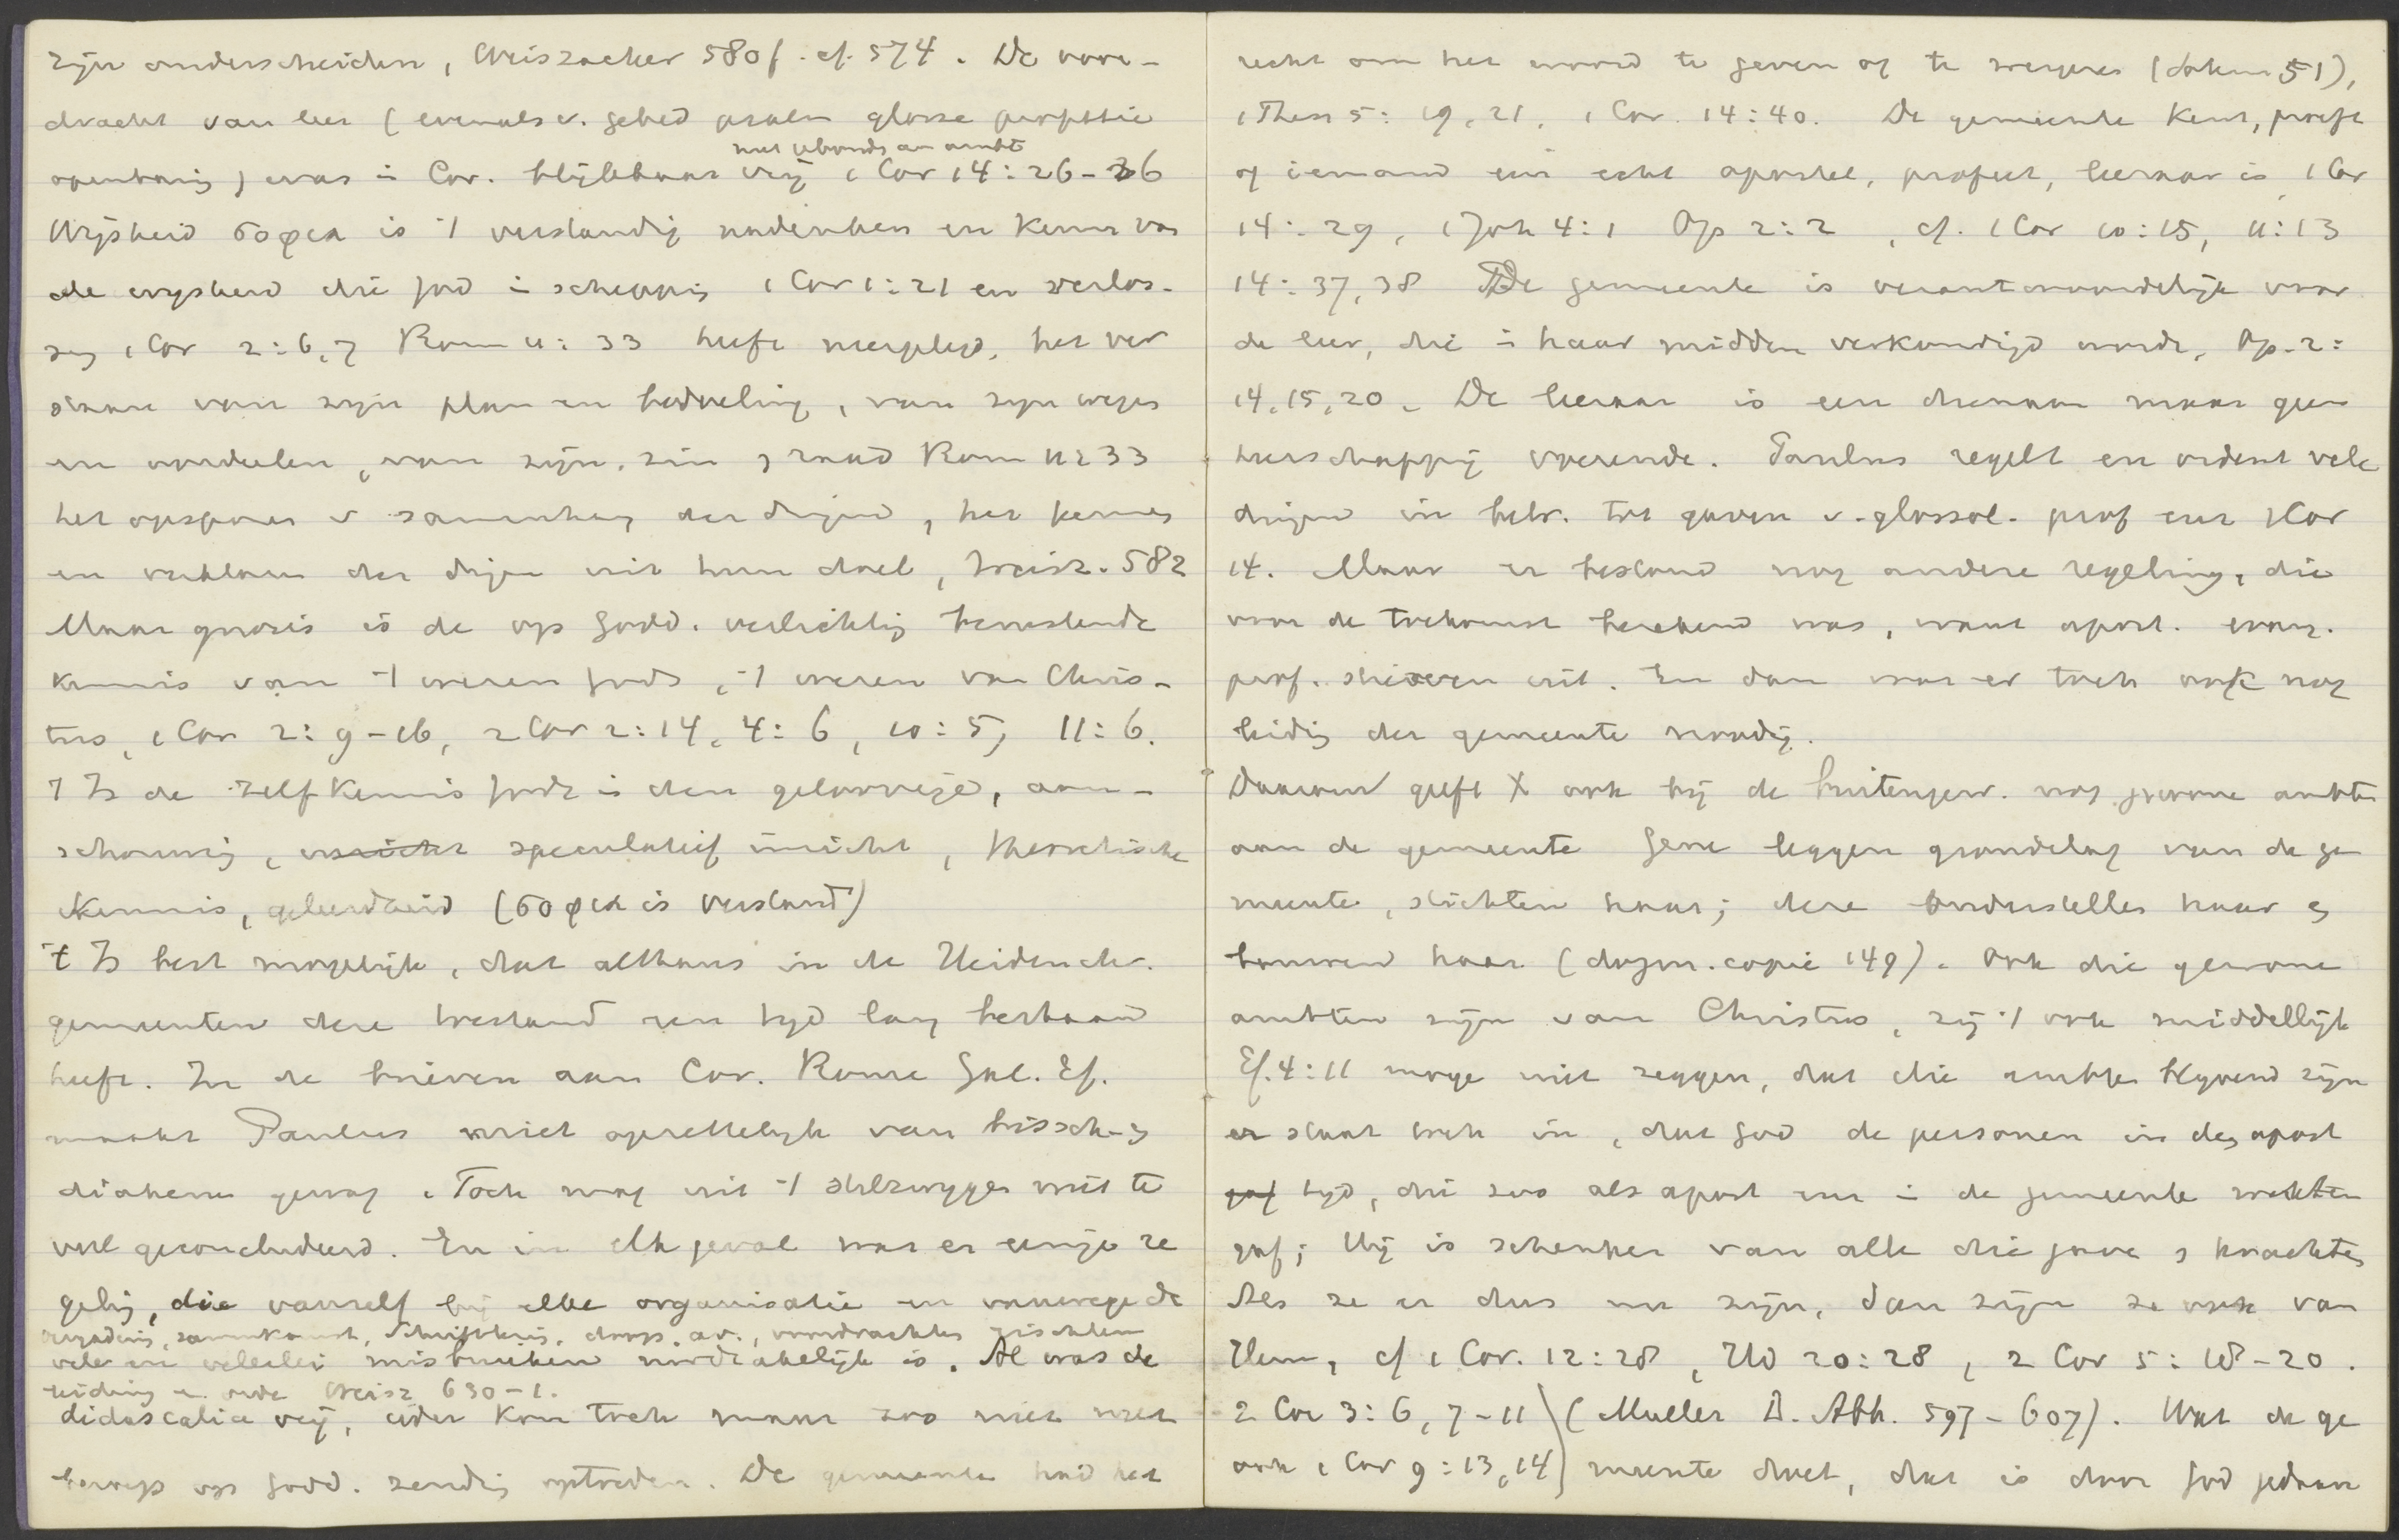 zijn onderscheiden, Weiszäcker 580f. cf. 574. De voor-
dracht van leer (evenals v. gebed psalm glosse prophetie
niet gebonden aan ambt
openbaring) was in Cor. blijkbaar vrij 1 Cor 14:26-36
Wijsheid σοφια is 't verstandig nadenken en kennis van
de wijsheid die God in schepping 1 Cor 1:21 en verlos-
sing 1 Cor 2:6,7 Rom 11:33 heeft neergelegd, het ver
staan van zijn plan en bedoeling, van zijn wegen
en oordeelen, van zijn zin en raad Rom 11:33
het opsporen v samenhang der dingen, het kennen
en verklaren der dingen uit hun doel, Weisz. 582
Maar gnosis is de op Godd. verlichting berustende
kennis van 't wezen Gods, 't wezen van Chris-
tus, 1 Cor 2:9-16, 2 Cor 2:14, 4:6, 10:5, 11:6.
't Is de zelfkennis Gods in den geloovige, aan-
schouwing, inzicht speculatief inzicht, theoretische
kennis, geleerdheid (σοφια is verstand)
't Is best mogelijk, dat althans in de Heidenchr.
gemeenten deze toestand een tijd lang bestaan
heeft. In de brieven aan Cor. Rome Gal. Ef.
maakt Paulus niet opzettelijk van bissch. en
diakenen gewag. Toch mag uit 't stilzwijgen niet te
veel geconcludeerd. En in elk geval was er eenige re
geling, die vanzelf bij elke organisatie en vanwege de
vergadering, samenkomst, Schriftlezing, doop, av., voordrachten geschillen
vele en velerlei misbruiken noodzakelijk is. Al was de
leiding en orde Weisz 630-1.
didascalia vrij, ieder kon toch maar zoo niet met
beroep op Godd. zending optreden. De gemeente had het
recht om het woord te geven of te weigeren (dokum 51),
1 Thess 5:19,21, 1 Cor. 14:40. De gemeente keur, proeft
of iemand een echt apostel, profeet, leeraar is, 1 Cor
14:29, 1 Joh 4:1 Op 2:2, cf. 1 Cor 10:15, 11:13
14:37,38 De gemeente is verantwoordelijk voor
de leer, die in haar midden verkondigd wordt, Op. 2:
14,15,20. De leeraar is een dienaar maar geen
heerschappij voerende. Paulus regelt en ordent vele
dingen in betr. tot gaven v. glossol. prof enz 1 Cor
14. Maar er bestond nog andere regeling, die
voor de toekomst berekend was, want apost. evang.
prof. stierven uit. En dan was er toch ook nog
leiding der gemeente noodig.
Daarom geeft X ook bij de buitengew. nog gewone ambten
aan de gemeente Gene leggen grondslag van de ge
meente, stichten haar; deze onderstellen haar en
bouwen haar (dogm. copie 149). Ook die gewone
ambten zijn van Christus, zij 't ook middellijk
Ef. 4:11 moge niet zeggen, dat die ambten blijvend zijn
er staat toch in, dat God de personen in den apost
gaf tijd, die zoo als apost enz in de gemeente werkten
gaf; Hij is schenker van alle die gaven en krachten
Als ze er dus nu zijn, dan zijn ze ook van
Hem, cf 1 Cor. 12:28, Hd 20:28, 2 Cor 5:18-20.
2 Cor 3:6, 7-11 (Muller D. Abh. 597-607). Wat de ge
ook 1 Cor 9:13,14) meente doet, dat is door God gedaan